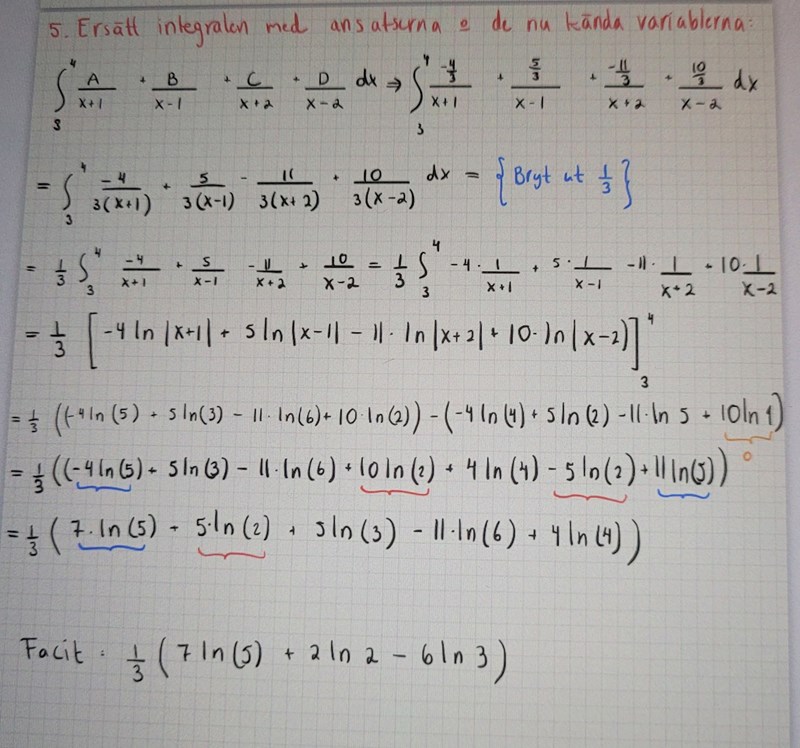 5. Ersätt integralen med ansatserna o de nu kända variablerna:
∫₃⁴ A/(x+1) + B/(x-1) + C/(x+2) + D/(x-2) dx ⇒ ∫₃⁴ (-4/3)/(x+1) + (5/3)/(x-1) + (-11/3)/(x+2) + (10/3)/(x-2) dx
= ∫₃⁴ -4/(3(x+1)) + 5/(3(x-1)) - 11/(3(x+2)) + 10/(3(x-2)) dx = {Bryt ut 1/3}
= 1/3 ∫₃⁴ -4/(x+1) + 5/(x-1) - 11/(x+2) + 10/(x-2) = 1/3 ∫₃⁴ -4·1/(x+1) + 5·1/(x-1) -11·1/(x+2) + 10·1/(x-2)
= 1/3 [-4 ln|x+1| + 5 ln|x-1| - 11· ln|x+2| + 10· ln|x-2)]₃⁴
= 1/3 ((-4 ln(5) + 5 ln(3) - 11· ln(6) + 10· ln(2)) - (-4 ln(4) + 5 ln(2) - 11· ln 5 + 10 ln 1)
0
= 1/3 ((-4 ln(5) + 5 ln(3) - 11· ln(6) + 10 ln(2) + 4 ln(4) - 5 ln(2) + 11 ln(5))
= 1/3 (7· ln(5) + 5· ln(2) + 5 ln(3) - 11· ln(6) + 4 ln(4))
Facit: 1/3 (7 ln(5) + 2 ln 2 - 6 ln 3)